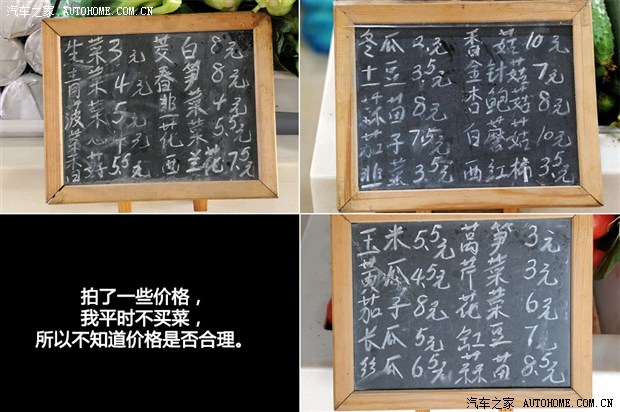 汽车之家 AUTOHOME.COM.CN
汽车之家 AUTOHOME.COM.CN
生菜3元 茭白8元
青菜4元 香笋8元
菠菜5元 韭菜4元
菜心4元 花菜5.5元
香菇5.5元 西兰花7.5元
冬瓜2元 香菇10元
土豆3.5元 金针菇7元
蒜苗8元 杏鲍菇8元
茄子7.5元 白蘑菇10元
韭菜3.5元 西红柿3.5元
拍了一些价格，
我平时不买菜，
所以不知道价格是否合理。
玉米5.5元 莴笋3元
黄瓜4.5元 芹菜3元
茄子8元 花菜6元
长瓜5元 缸豆7元
丝瓜6.5元 蒜苗8.5元
汽车之家 AUTOHOME.COM.CN
汽车之家 AUTOHOME.COM.CN